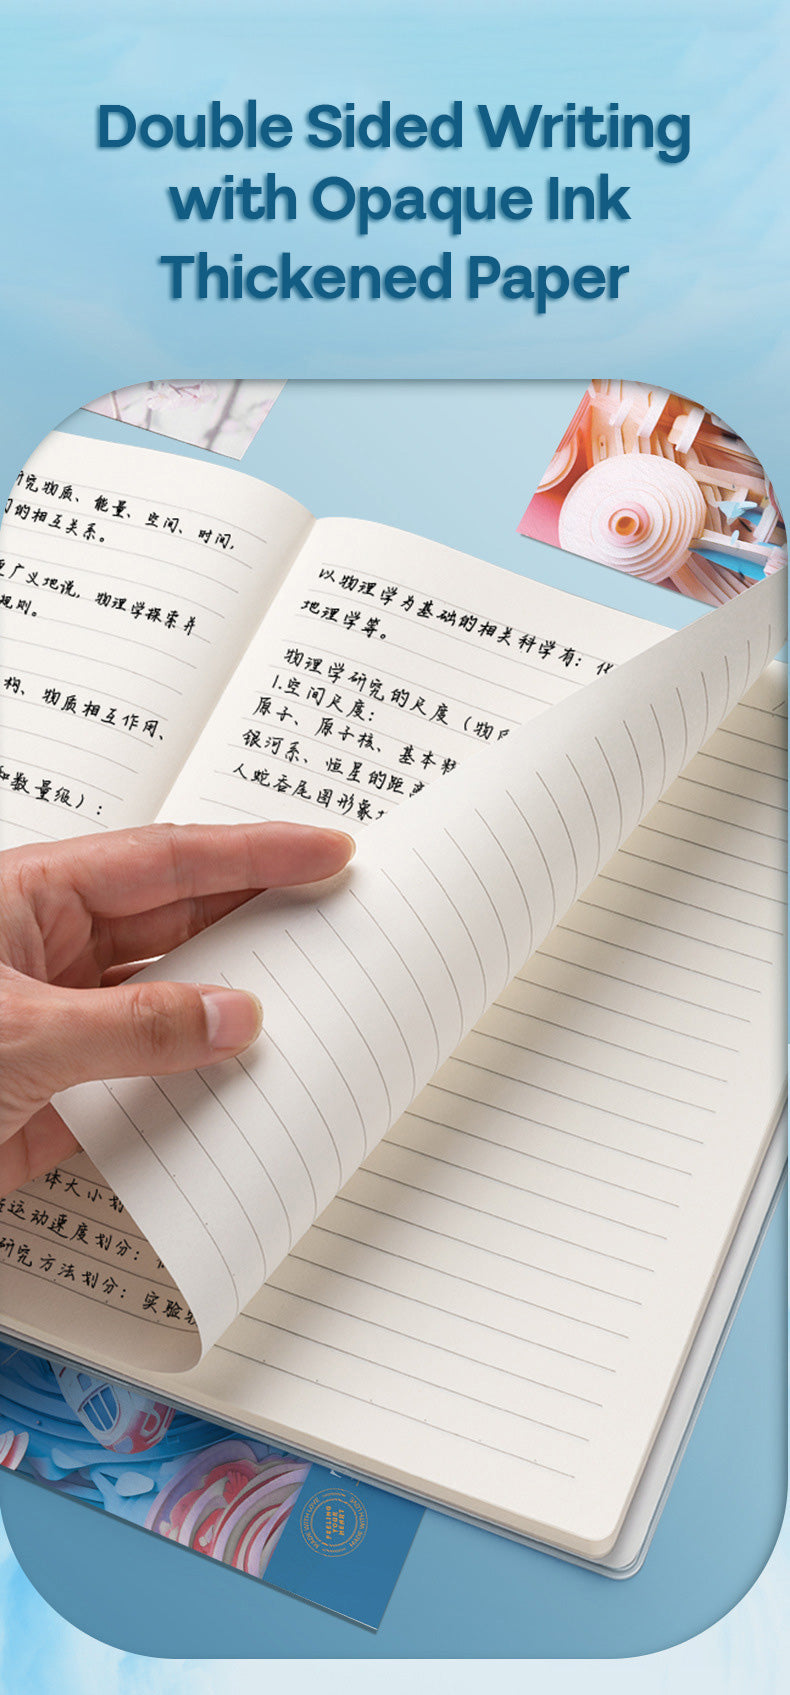 Double Sided Writing
with Opaque Ink
Thickened Paper
究物质、能量、空间、时间,
的相互关系。
广义地说, 物理学探索并
规则。
构、物质相互作用、
和数量级):
以物理学为基础的相关科学有: 化
地理学等。
物理学研究的尺度 (物质
1.空间尺度:
原子、原子核、基本
银河系、恒星的距离
人蛇吞尾图形象
体大小划
运动速度划分:
研究方法划分: 实验
FEELING
YOUR
HEART